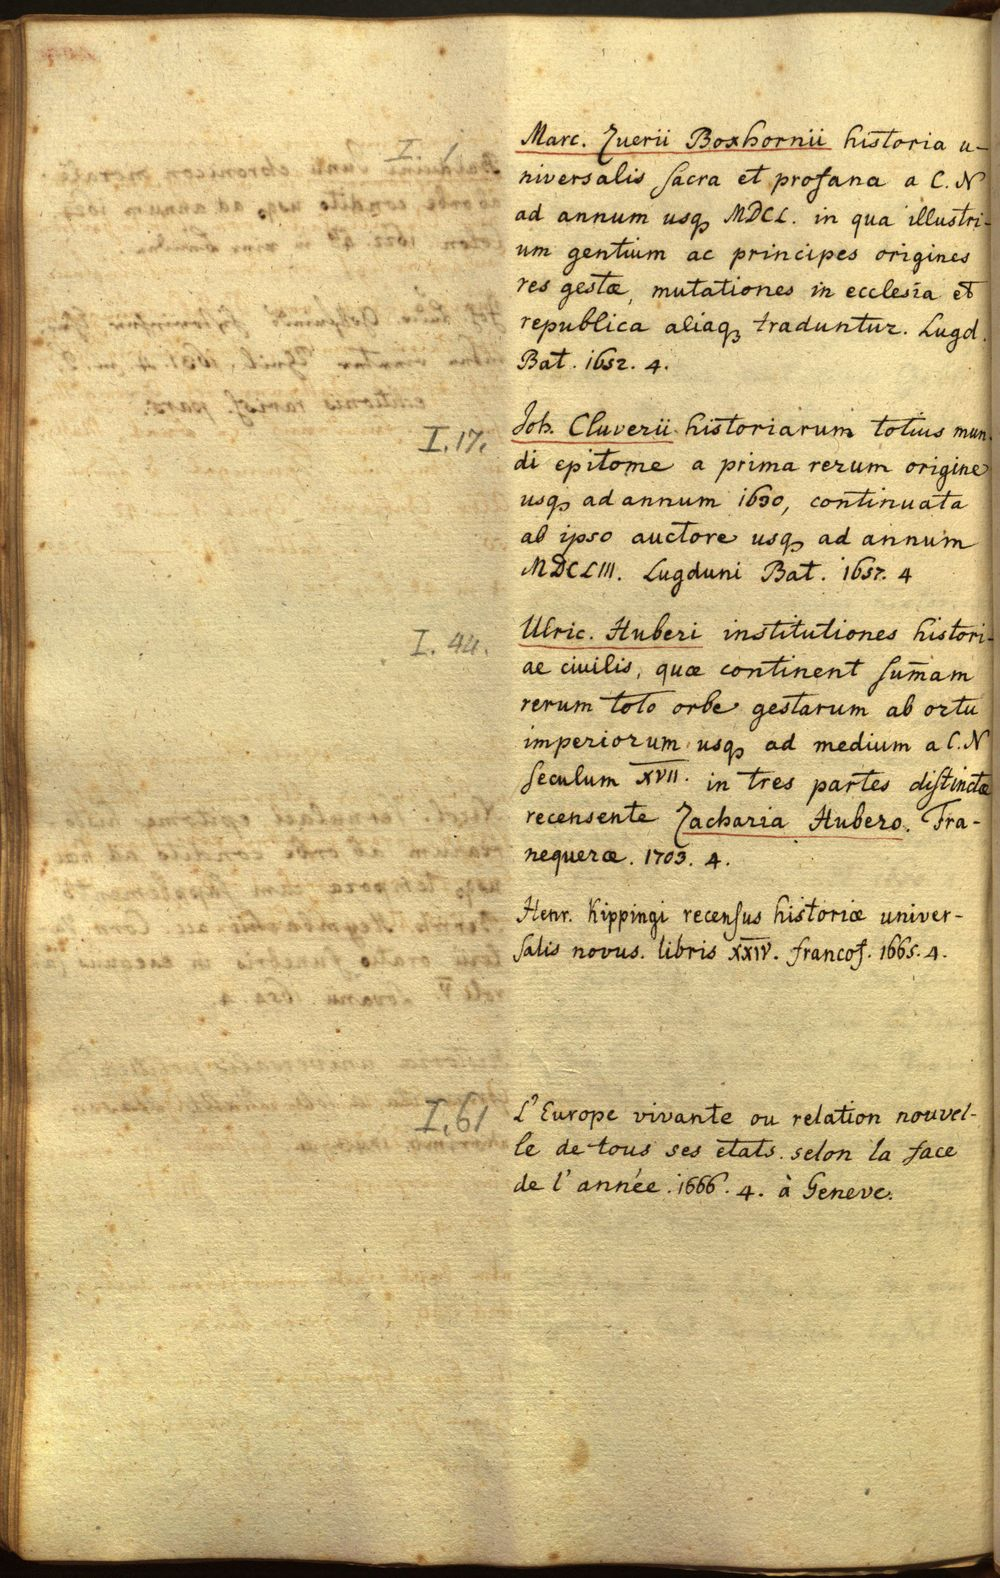 I. 1
Marc. Zuerii Boxhornii historia u-
niversalis sacra et profana a C. N
ad annum usq₃ MDCL. in qua illustri-
um gentium ac principes origines
res gestæ, mutationes in ecclesia et
republica aliaq₃ traduntur. Lugd.
Bat. 1652. 4.
I. 17.
Joh. Cluverii historiarum totius mun-
di epitome a prima rerum origine
usq₃ ad annum 1630, continuata
ab ipso auctore usq₃ ad annum
MDCLIII. Lugduni Bat. 1657. 4
I. 44.
Ulric. Huberi institutiones histori-
ae civilis, quæ continent sum̄am
rerum toto orbe gestarum ab ortu
imperiorum usq₃ ad medium a C. N
seculum XVII. in tres partes distinctæ
recensente Zacharia Hubero. Fra-
nequeræ. 1703. 4.
Henr. Kippingi recensus historiæ univer-
salis novus. libris XXIV. francof. 1665. 4.
I. 61
L'Europe vivante ou relation nouvel-
le de tous ses états. selon la face
de l'année. 1666. 4. à Geneve.